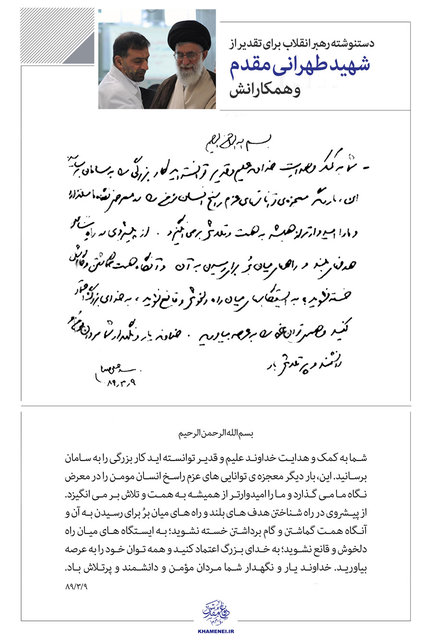 دستنوشته رهبر انقلاب برای تقدیر از
شهید طهرانی مقدم
و همکارانش
بسم الله الرحمن الرحیم
شما به کمک و هدایت خداوند علیم و قدیر توانسته اید کار بزرگی را به سامان برسانید
این، بار دیگر معجزه ی توانایی های عزم راسخ انسان مومن را در معرض نگاه ما میگذارد
و ما را امیدوارتر از همیشه به همت و تلاش برمی انگیزد. از پیشروی در راه شناختن
هدف های بلند و راه های میان بُر برای رسیدن به آن و آنگاه همت گماشتن و گام برداشتن
خسته نشوید؛ به ایستگاه های میان راه دلخوش و قانع نشوید؛ به خدای بزرگ اعتماد
کنید و همه توان خود را به عرصه بیاورید. خداوند یار و نگهدار شما مردان مؤمن و
دانشمند و پرتلاش باد
۸۹/۳/۹
بسم‌الله‌الرحمن‌الرحیم
شما به کمک و هدایت خداوند علیم و قدیر توانسته اید کار بزرگی را به سامان
برسانید. این، بار دیگر معجزه ی توانایی های عزم راسخ انسان مومن را در معرض
نگاه ما می گذارد و ما را امیدوارتر از همیشه به همت و تلاش بر می انگیزد.
از پیشروی در راه شناختن هدف های بلند و راه های میان بُر برای رسیدن به آن و
آنگاه همت گماشتن و گام برداشتن خسته نشوید؛ به ایستگاه های میان راه
دلخوش و قانع نشوید؛ به خدای بزرگ اعتماد کنید و همه توان خود را به عرصه
بیاورید. خداوند یار و نگهدار شما مردان مؤمن و دانشمند و پرتلاش باد.
۸۹/۳/۹
KHAMENEI.IR